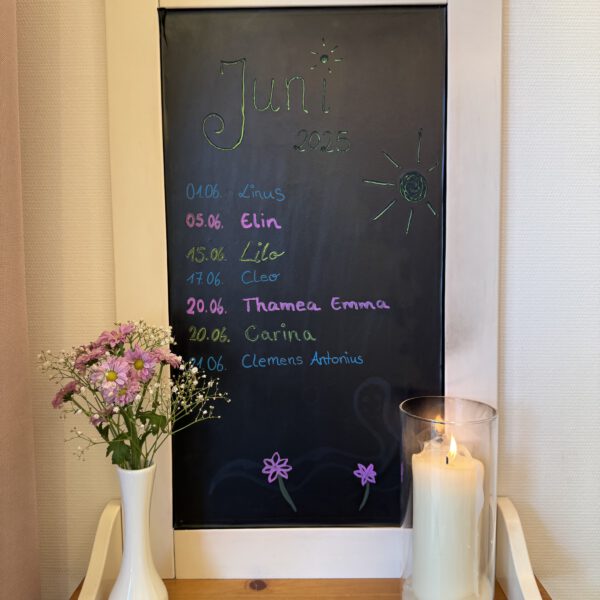 Juni
2025
01.06. Linus
05.06. Elin
15.06. Lilo
17.06. Cleo
20.06. Thamea Emma
20.06. Carina
21.06. Clemens Antonius